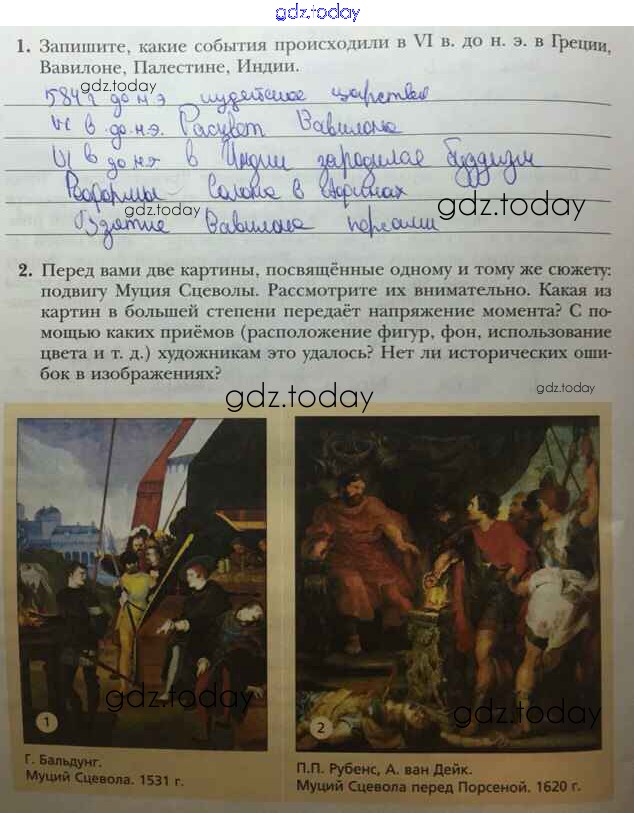 gdz.today
1. Запишите, какие события происходили в VI в. до н. э. в Греции,
Вавилоне, Палестине, Индии.
gdz.today
584 г до н э иудейское царство
VI в. до. н. э. Расцвет Вавилона
VI в до н э в Индии зародилая буддизм
Реформы Солона в Афинах
gdz.today
gdz.today
Взятие Вавилона персами
2. Перед вами две картины, посвящённые одному и тому же сюжету:
подвигу Муция Сцеволы. Рассмотрите их внимательно. Какая из
картин в большей степени передаёт напряжение момента? С по-
мощью каких приёмов (расположение фигур, фон, использование
цвета и т. д.) художникам это удалось? Нет ли исторических оши-
бок в изображениях?
gdz.today
gdz.today
gdz.today
gdz.today
gdz.today
gdz.today
1
2
Г. Бальдунг.
Муций Сцевола. 1531 г.
П.П. Рубенс, А. ван Дейк.
Муций Сцевола перед Порсеной. 1620 г.